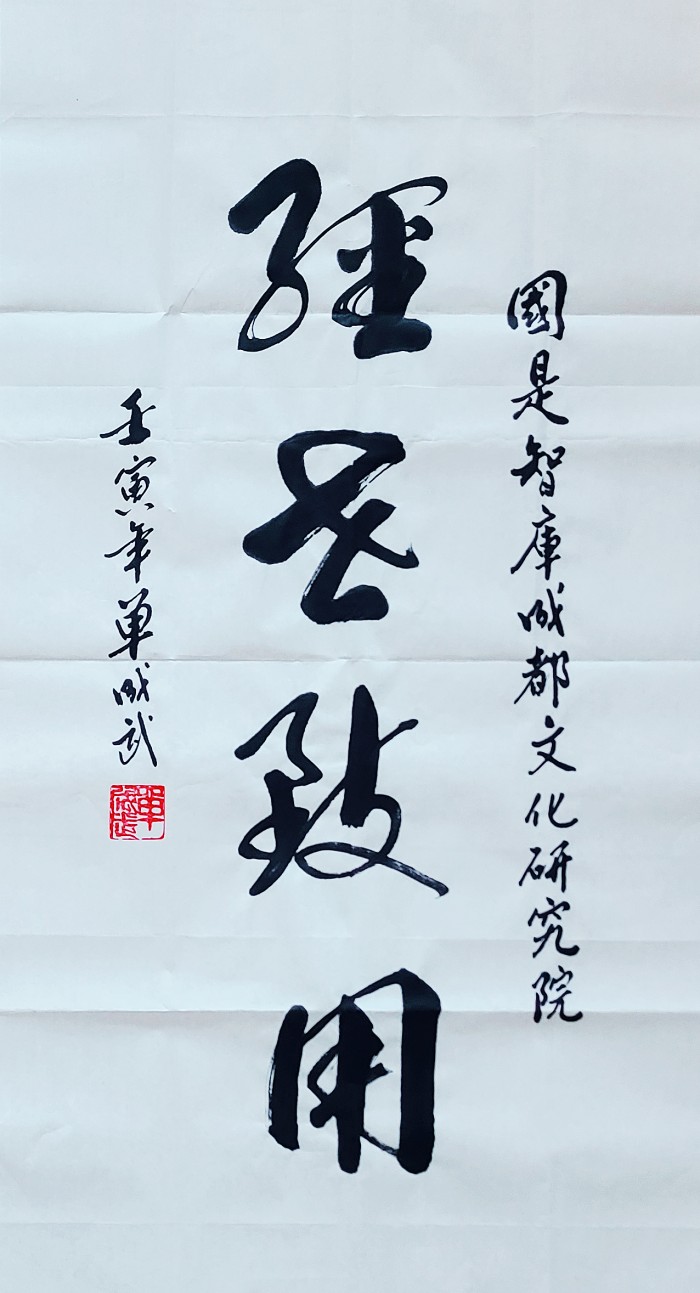 國是智庫成都文化研究院
經世致用
壬寅年單成武
單成武